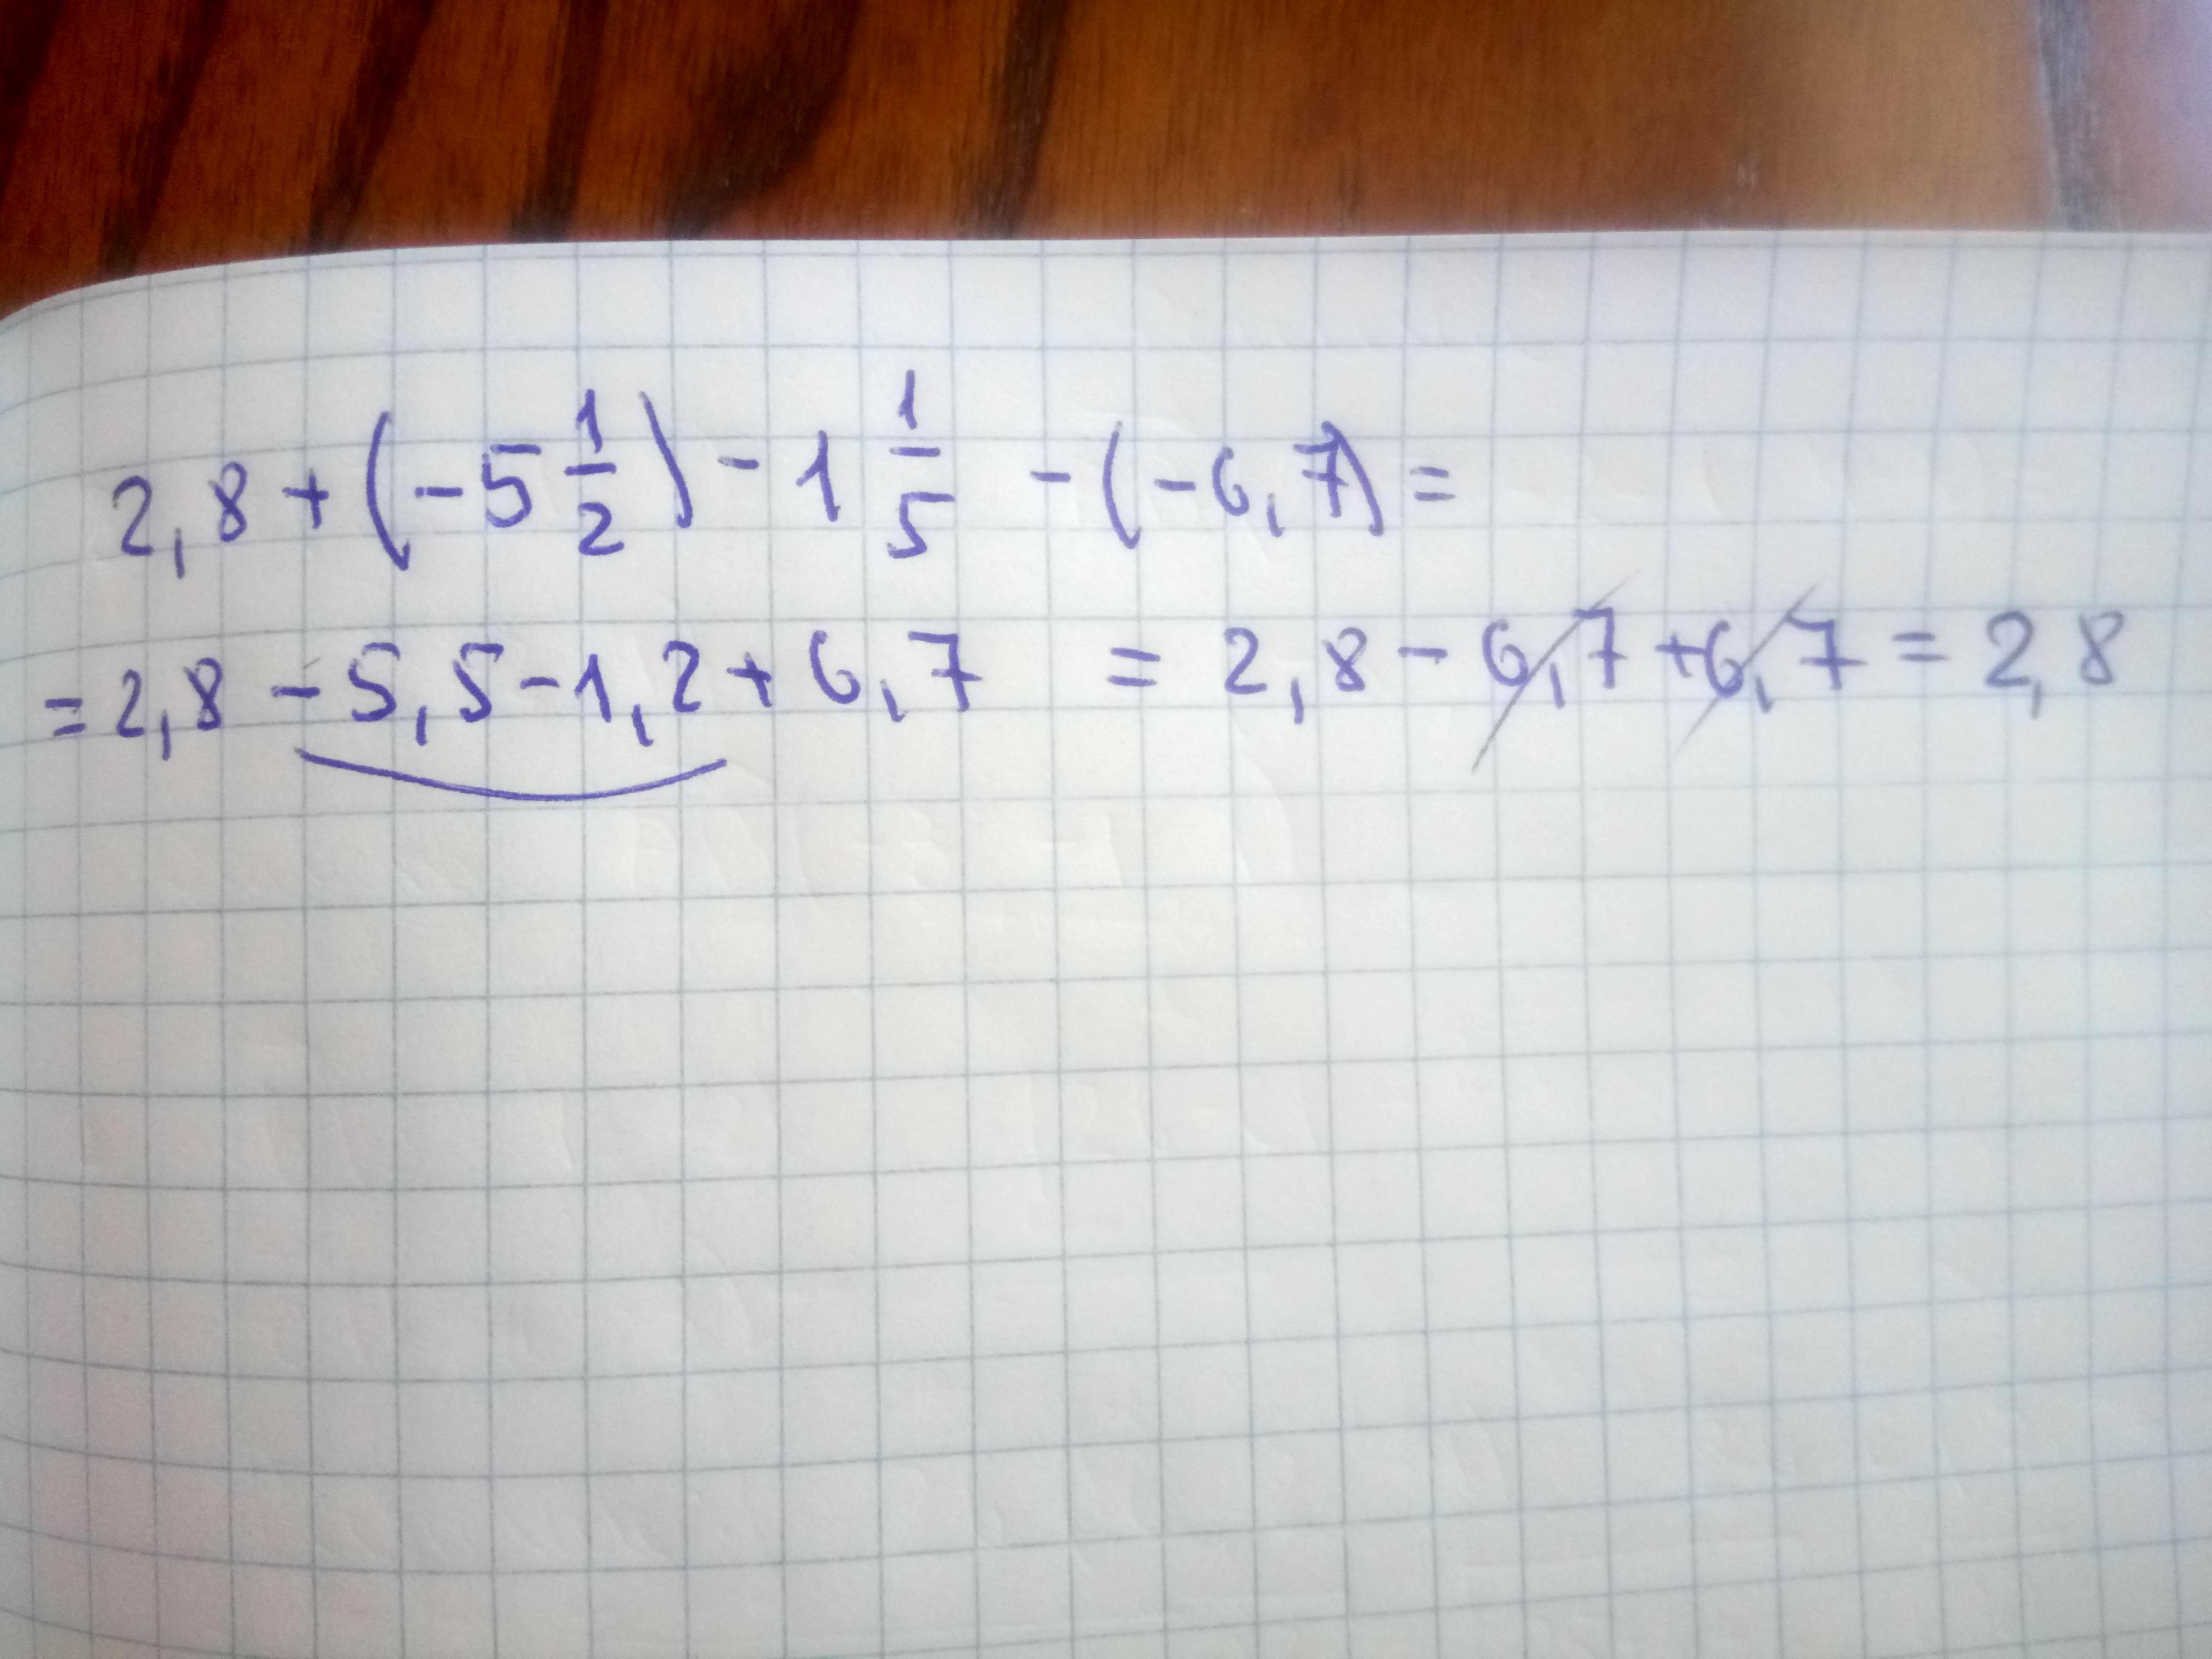 2,8 + (-5 1/2) - 1 1/5 - (-6,7) =
= 2,8 - 5,5 - 1,2 + 6,7 = 2,8 - 6,7 + 6,7 = 2,8